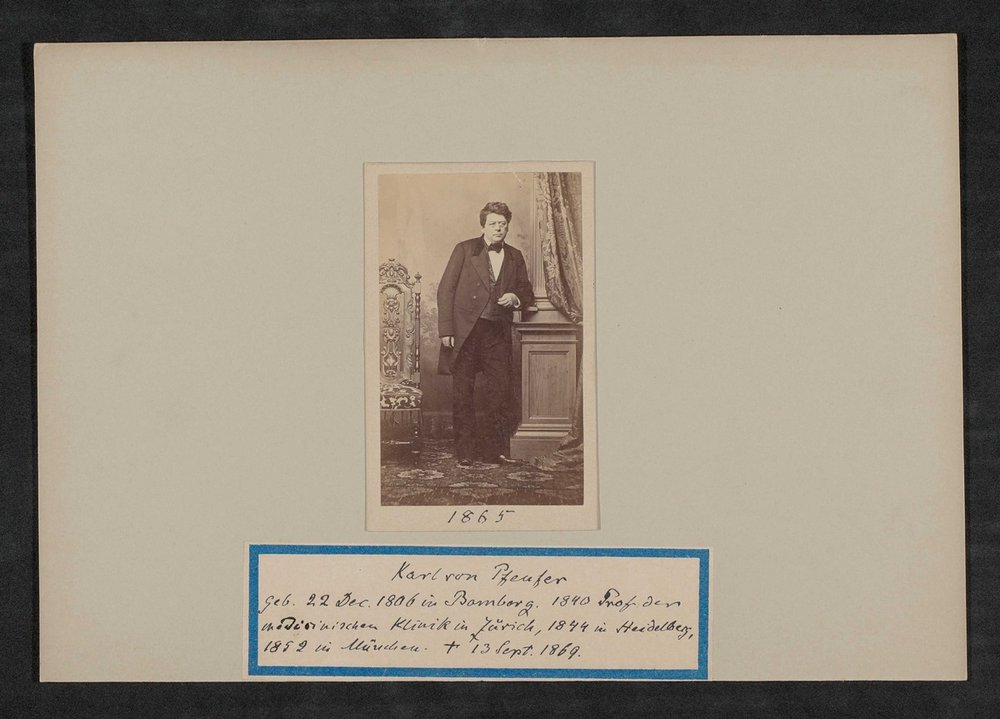 1865
Karl von Pfeufer
geb. 22 Dec. 1806 in Bamberg. 1840 Prof. der
medicinischen Klinik in Zürich, 1844 in Heidelberg,
1852 in München. † 13 Sept. 1869.